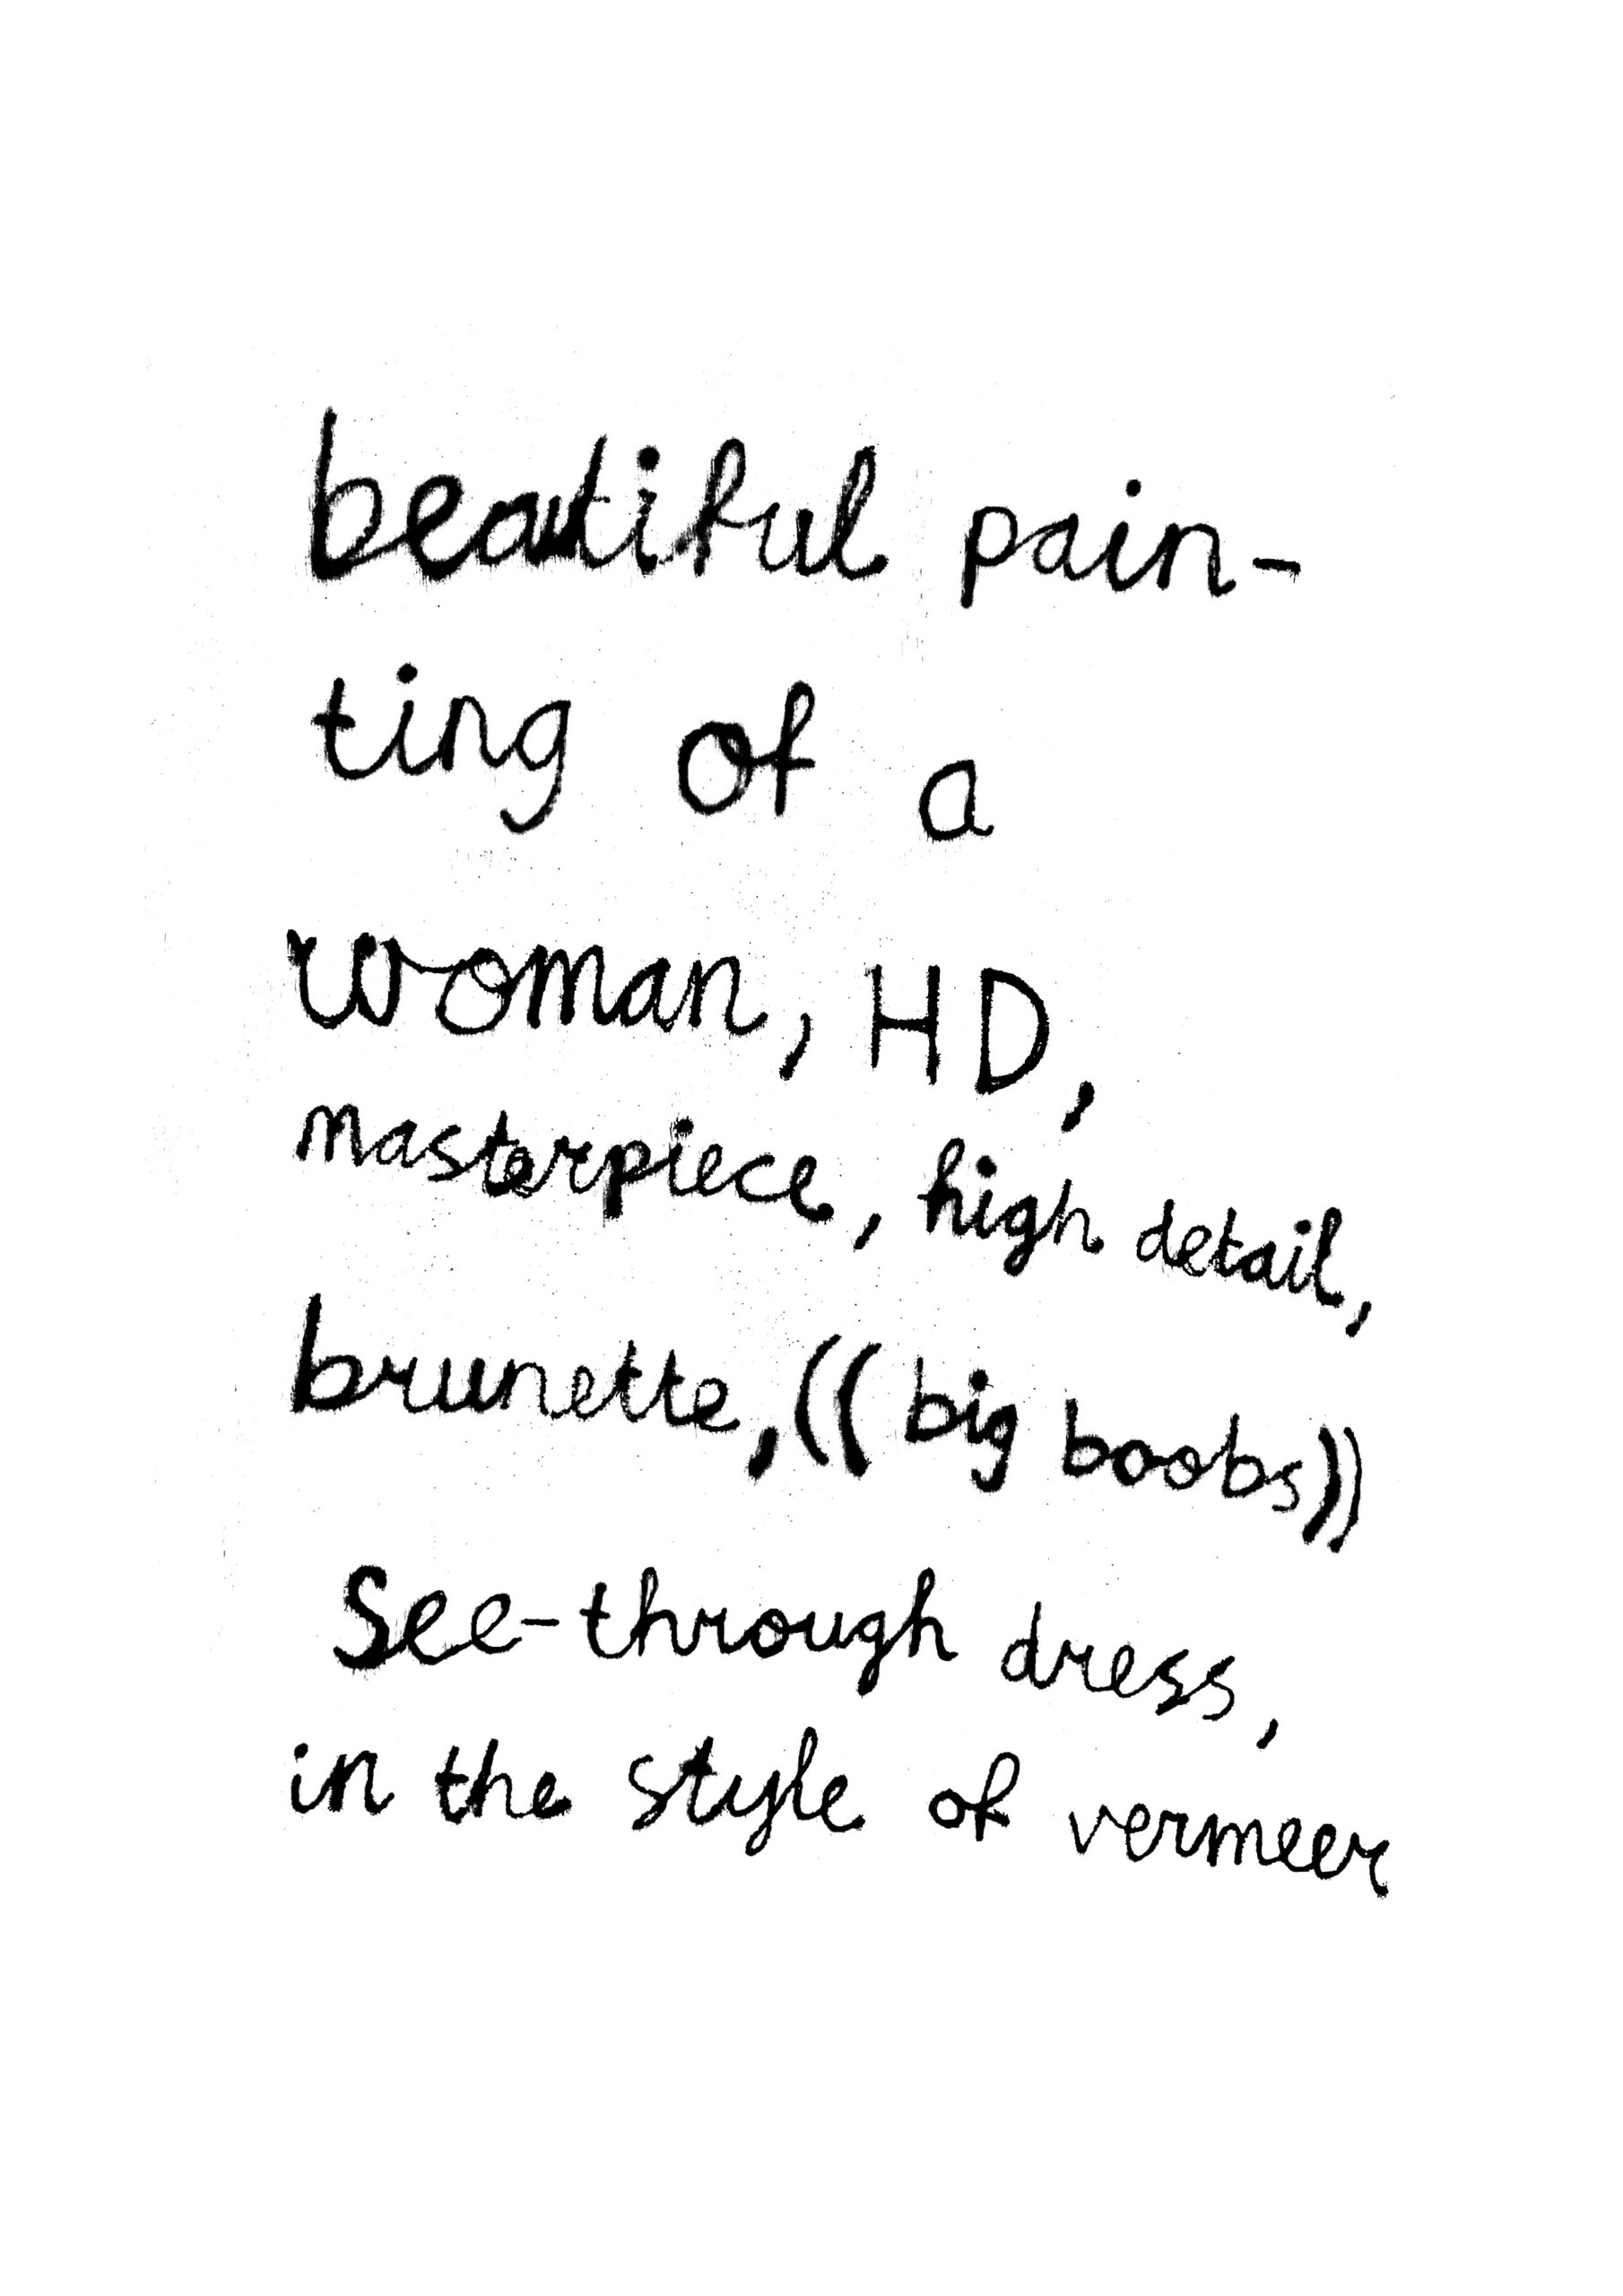 beautiful pain-
ting of a
woman, HD,
masterpiece, high detail,
brunette, ((big boobs))
See-through dress,
in the style of vermeer